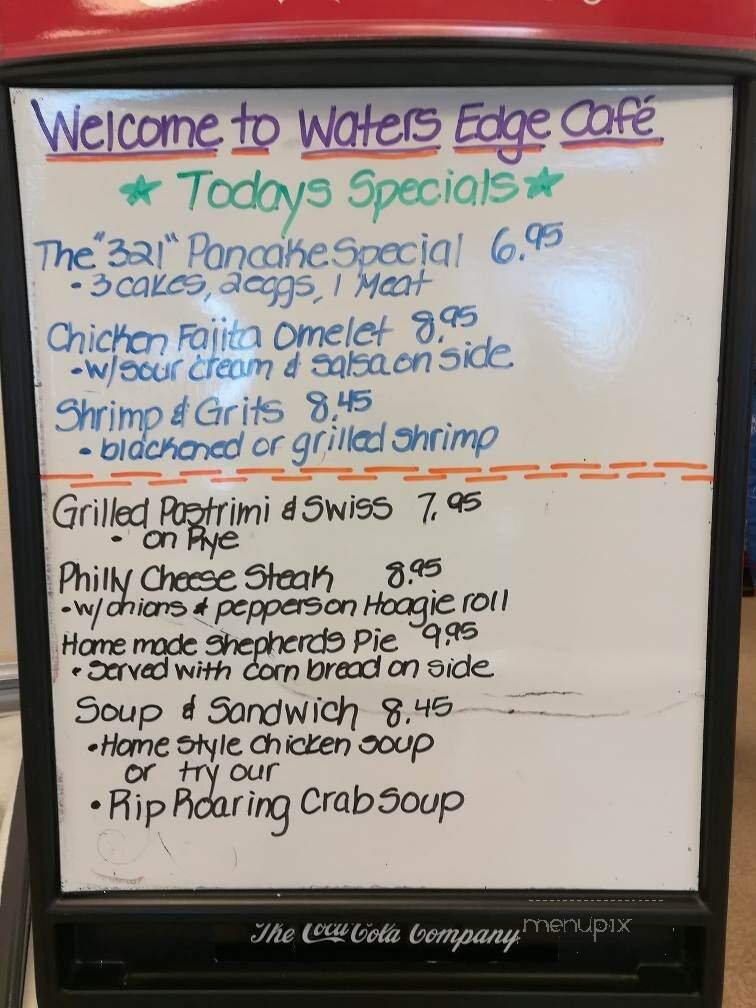 Welcome to Waters Edge Café
Todays Specials
The "321" Pancake Special 6.95
• 3 cakes, 2 eggs, 1 Meat
Chicken Fajita Omelet 8.95
• w/sour cream & salsa on side
Shrimp & Grits 8.45
• blackened or grilled shrimp
Grilled Pastrimi & Swiss 7.95
• on Rye
Philly Cheese Steak 8.95
• w/onions & peppers on Hoagie roll
Home made shepherds Pie 9.95
• Served with corn bread on side
Soup & Sandwich 8.45
• Home style chicken soup
or try our
• Rip Roaring Crab Soup
The Coca-Cola Company
menupix